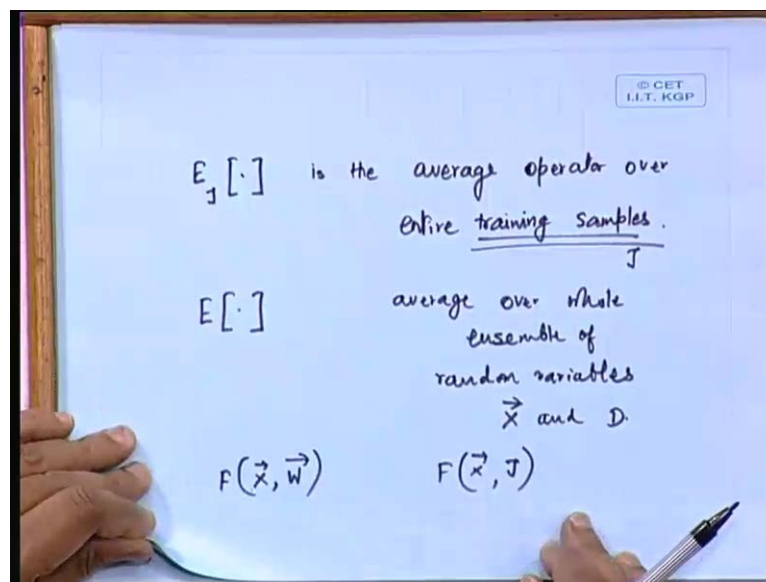 © CET
I.I.T. KGP
E_J [·] is the average operator over
entire training samples.
J
E[·] average over whole
ensemble of
random variables
X⃗ and D.
F(x⃗, w⃗) F(x⃗, J)